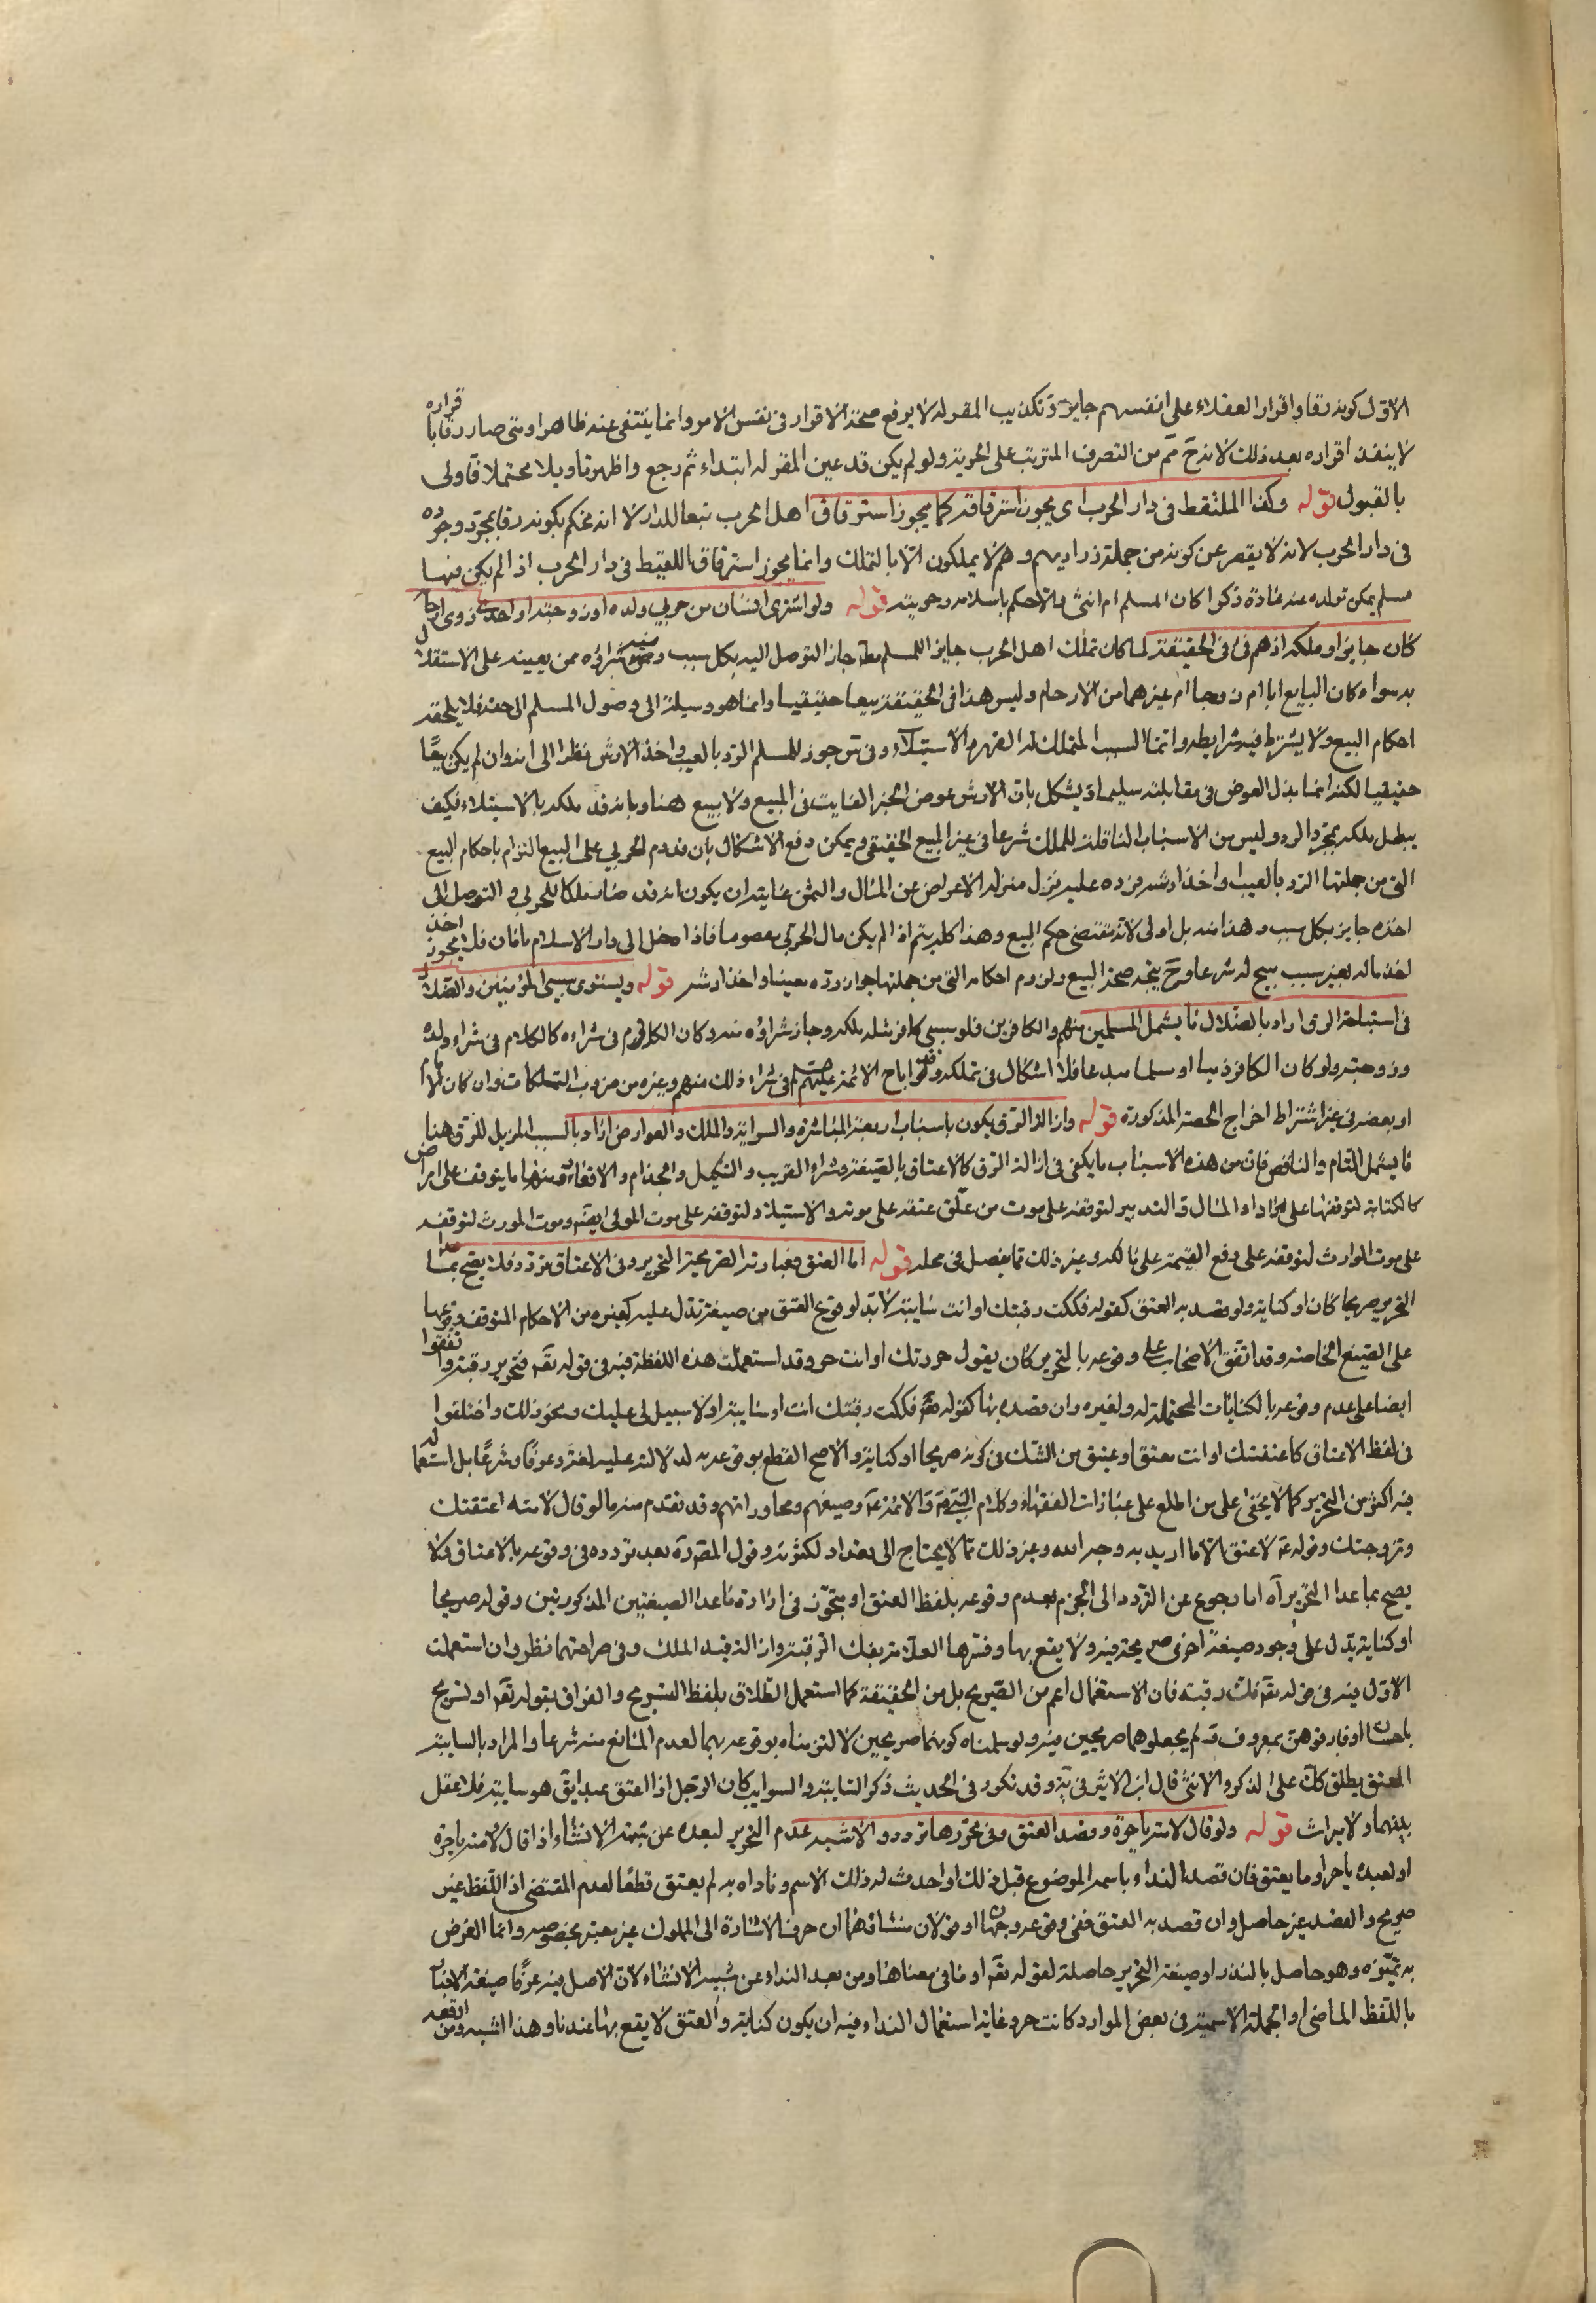 الاول كونه رقا واقرار العقلاء على انفسهم جايز وتكذيب المقر له لا يرفع صحة الاقرار فى نفس الامر وانما ينتفى عنه ظاهرا ومتى صار رقا باقراره
لا ينفذ اقراره بعد ذلك لانه ح مم من التصرف المترتب على الحرية ولو لم يكن قد عين المقر له ابتداء ثم رجع واظهر تاويلا محتملا فاولى
بالقبول قوله وكذا الملتقط فى دار الحرب اى يجوز استرقاقه كما يجوز استرقاق اهل الحرب تبعا للدار لا انه نحكم بكونه رقا بمجرد وجوده
فى دار الحرب لانه لا يقصر عن كونه من جملة ذراريهم وهم لا يملكون الا بالتملك وانما يجوز استرقاق اللقيط فى دار الحرب اذا لم يكن فيها
مسلم يمكن تولده عنه عادة ذكرا كان المسلم ام انثى والا حكم باسلامه وحريته قوله ولو اشترى انسان من حربي ولده او زوجته او احد ذوى ارحامه
كان جايزا وملكه اذ هم فئ فى الحقيقة لما كان تملك اهل الحرب جايزا للمسلم مطه جاز التوصل اليه بكل سبب ومنه شراؤه ممن يعينه على الاستقلال
به سواء كان البايع ابا ام زوجا ام غيرهما من الارحام وليس هذا فى الحقيقة بيعا حقيقيا وانما هو وسيلة الى وصول المسلم الى حقه فلا يلحقه
احكام البيع ولا يشترط فيه شرايطه وانما السبب المتملك له القهر والاستيلاء وفى س جوز للمسلم الرد بالعيب واخذ الارش نظرا الى انه وان لم يكن بيعا
حقيقيا لكنه انما بذل العوض فى مقابلته سليما ويشكل بان الارش عوض الجزء الفايت فى المبيع ولا بيع هنا وبانه قد ملكه بالاستيلاء فكيف
يبطل ملكه بمجرد الرد وليس من الاسباب الناقلة للملك شرعا فى غير المبيع الحقيقى ويمكن دفع الاشكال بان قدوم الحربي على البيع التزام باحكام البيع
التى من جملتها الرد بالعيب واخذ ارشه فرده عليه ينزل منزله الاعراض عن المال والثمن غايته ان يكون انه قد صار ملكا للحربي والتوصل الى
اخذه جايز بكل سبب وهذا منه بل اولى لانه مقتضى حكم البيع وهذا كله يتم اذا لم يكن مال الحربي معصوما فاذا دخل الى دار الاسلام بامان فلا يجوز اخذ
اخذ ماله بغير سبب مبيح له شرعا وح يتجه صحة البيع ولزوم احكامه التى من جملتها جواز رده معيبا واخذ ارشه قوله ويستوى سبى المؤمنين والضلال
فى استباحة الرق اراد بالضلال ما يشمل المسلمين منهم والكافرين فلو سبى كافر مثله ملكه وجاز شراؤه منه وكان الكلام فى شراءه كالكلام فى شراء ولده
وزوجته ولو كان الكافر ذميا او مسلما مبدعا فلا اشكال فى تملكه وقد اباح الائمة عليهم السلم فى شراء ذلك منهم وغيره من ضروب التملكات وان كان للامام
او بعضه فى غير اشتراط اخراج الحصة المذكورة قوله وازالة الرق يكون باسباب اربعة المباشرة والسراية والملك والعوارض اراد بالسبب المزيل للرق هنا
ما يشمل التام والناقص فان من هذه الاسباب ما يكفى فى ازالة الرق كالاعتاق بالصيغة وشراء القريب والتنكيل والجذام والاقعاد ومنها ما يتوقف على امر اخر
كالكتابة لتوقفها على اداء المال والتدبير لتوقفه على موت من علق عتقه على موته والاستيلاد لتوقفه على موت المولى ايضه وموت المورث لتوقفه
على موت الوارث لتوقفه على دفع القيمة على مالكه وغير ذلك مما يفصل فى محله قوله اما العتق فعبارته الصريحة التحرير وفى الاعتاق تردد فلا يصح بما عدا
التحرير صريحا كان او كناية ولو قصد به العتق كقوله فككت رقبتك او انت سايبة لا بد لوقوع العتق من صيغة تدل عليه كغيره من الاحكام المتوقف وقوعها
على الصيغ الخاصة وقد اتفق الاصحاب على وقوعه بالتحرير كان يقول حررتك او انت حر وقد استعملت هذه اللفظة فيه فى قوله تعه فتحرير رقبة واتفقوا
ايضا على عدم وقوعه بالكنايات المحتملة له ولغيره وان قصده بها كقوله فككت رقبتك انت او سايبة او لا سبيل لى عليك ونحو ذلك واختلفوا
فى لفظ الاعتاق كاعتقتك او انت معتق او عتيق من الشك فى كونه صريحا او كناية والاصح القطع بوقوعه به لدلالته عليه لغة وعرفا وشرعا بل استعماله
فيه اكثر من التحرير كما لا يخفى على من اطلع على عبارات الفقهاء وكلام النبي ص والائمة ع وصيغهم ومحاوراتهم وقد تقدم منه ما لو قال لامته اعتقتك
وتزوجتك وقوله ع لا عتق الا ما اريد به وجه الله وغير ذلك مما لا يحتاج الى تعداد لكثرته وقول المص ره بعد تردده فى وقوعه بالاعتاق ولا
يصح بما عدا التحرير آه اما رجوع عن التردد الى الجزم بعدم وقوعه بلفظ العتق او تجوز فى ارادة ما عدا الصيغتين المذكورتين وقوله صريحا
او كناية يدل على وجود صيغة اخرى صريحة فيه ولا يقع بها وفسرها العلامة بفك الرقبة وازالة قيد الملك وفى صراحتهما نظر وان استعملت
الاول فيه فى قوله تعه فك رقبة فان الاستعمال اعم من الصريح بل من الحقيقة كما استعمل الطلاق بلفظ التسريح والفراق بقوله تعه او تسريح
باحسان او فارقوهن بمعروف ثم لم يجعلوهما صريحين فيه ولو سلمناه كونهما صريحين لالتزمناه بوقوعه بهما لعدم المانع منه شرعا والمراد بالسايبة
المعتق يطلق كك على الذكر والانثى قال ابن الاثير فى يه وقد تكرر فى الحديث ذكر السايبة والسوايب كان الرجل اذا اعتق عبدا يق هو سايبة فلا عقل
بينهما ولا ميراث قوله ولو قال لامته يا حرة وقصد العتق وفى تحررها تردد والاشبه عدم التحرير لبعده عن شبه الانشاء اذا قال لامته يا حرة
او لعبده يا حر او ما يعتق فان قصد النداء باسمه الموضوع قبل ذلك او احدث له ذلك الاسم وناداه به لم يعتق قطعا لعدم المقتضى اذ اللفظ غير
صريح والقصد غير حاصل وان قصد به العتق ففى وقوعه وجهان او قولان منشاؤهما ان حرف الاشارة الى المملوك غير معتبر بخصوصه وانما الغرض
به تميزه وهو حاصل بالنداء وصيغة التحرير حاصلة لقوله تعه او ما فى معناها ومن بعد النداء عن شبه الانشاء لان الاصل فيه عرفا صيغة الاخبار
باللفظ الماضى او الجملة الاسمية فى بعض الموارد كانت حر وغاية استعمال النداء فيه ان يكون كناية والعتق لا يقع بها عندنا وهذا اشبه ومن